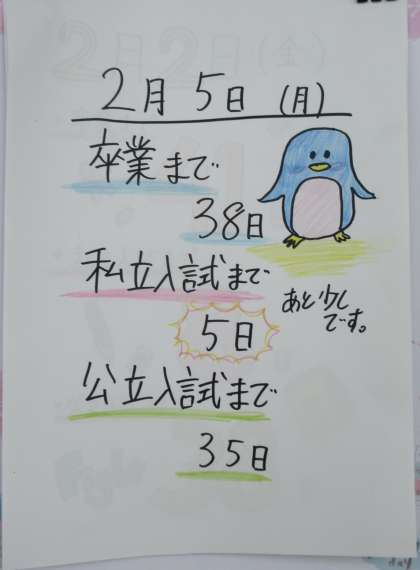 2月5日(月)
卒業まで
38日
私立入試まで
5日
あと少し
です。
公立入試まで
35日